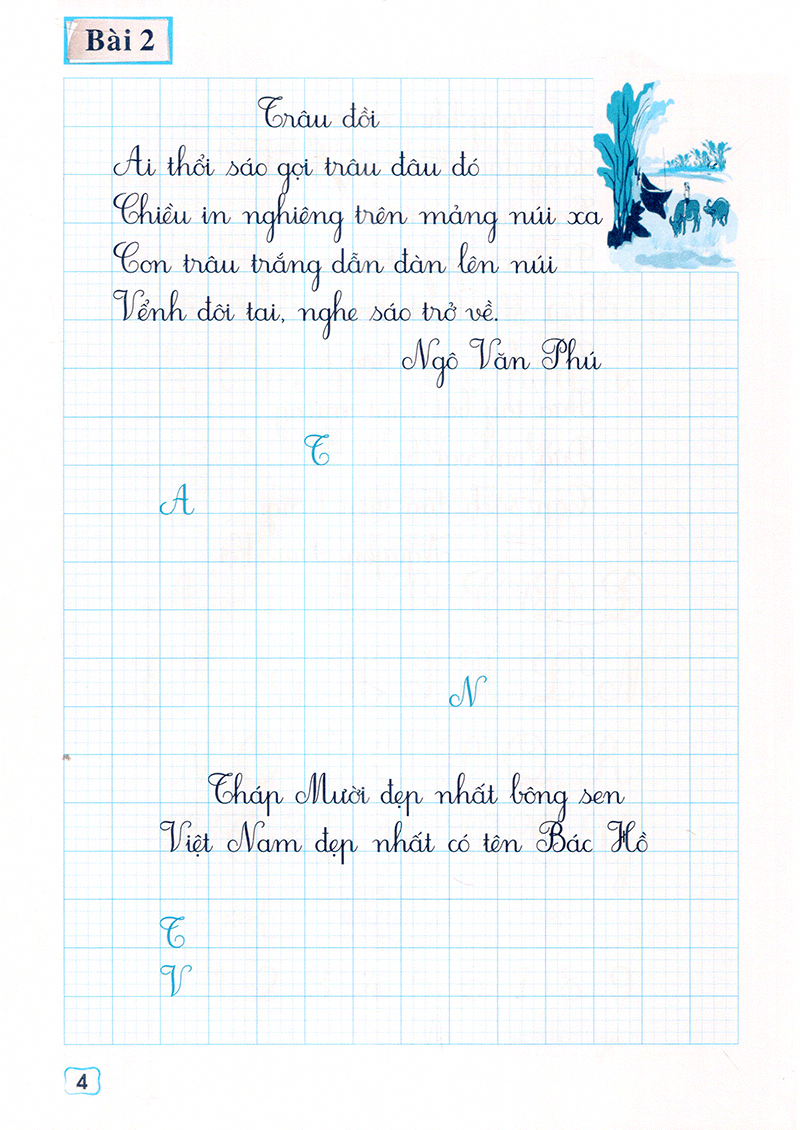 Bài 2
Trâu đồi
Ai thổi sáo gọi trâu đâu đó
Chiều in nghiêng trên mảng núi xa
Con trâu trắng dẫn đàn lên núi
Vểnh đôi tai, nghe sáo trở về.
Ngô Văn Phú
T
A
N
Tháp Mười đẹp nhất bông sen
Việt Nam đẹp nhất có tên Bác Hồ
T
V
4